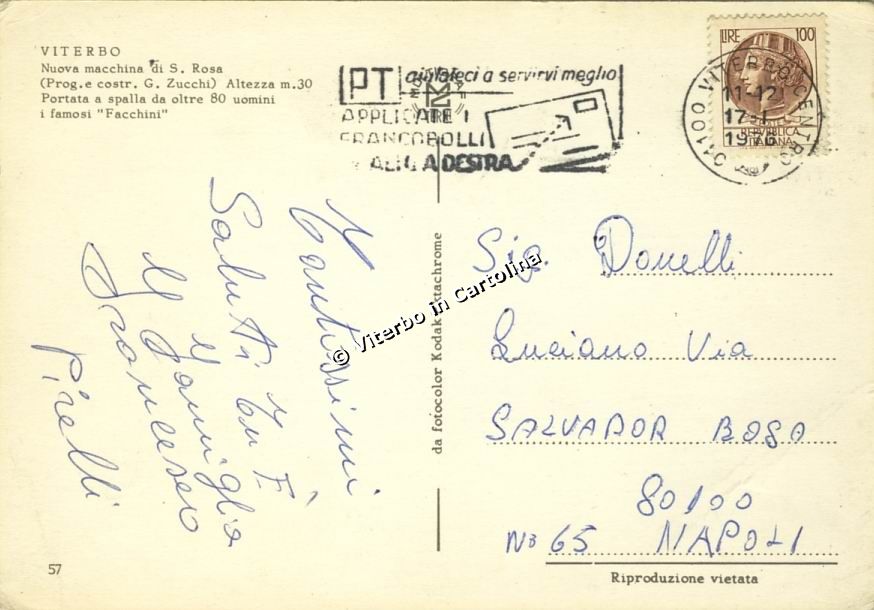 VITERBO
Nuova macchina di S. Rosa
(Prog. e costr. G. Zucchi) Altezza m.30
Portata a spalla da oltre 80 uomini
i famosi "Facchini"
PT aiutateci a servirvi meglio
APPLICATE I
FRANCOBOLLI
A DESTRA
LIRE 100
REPVBBLICA
ITALIANA
01100 VITERBO CENTRO
11-12
17-1
1976
Tantissimi
Saluti
Famiglia
Francesco
Pirelli
© Viterbo in Cartolina
da fotocolor Kodak Ektachrome
Sig. Donelli
Luciano Via
SALVADOR BOSO
80100
N° 65 NAPOLI
57
Riproduzione vietata